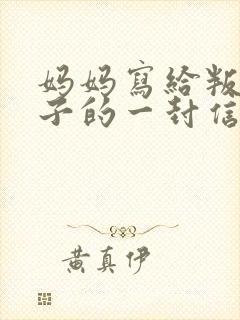 妈妈寫給叛
子的一封信
黄真伊